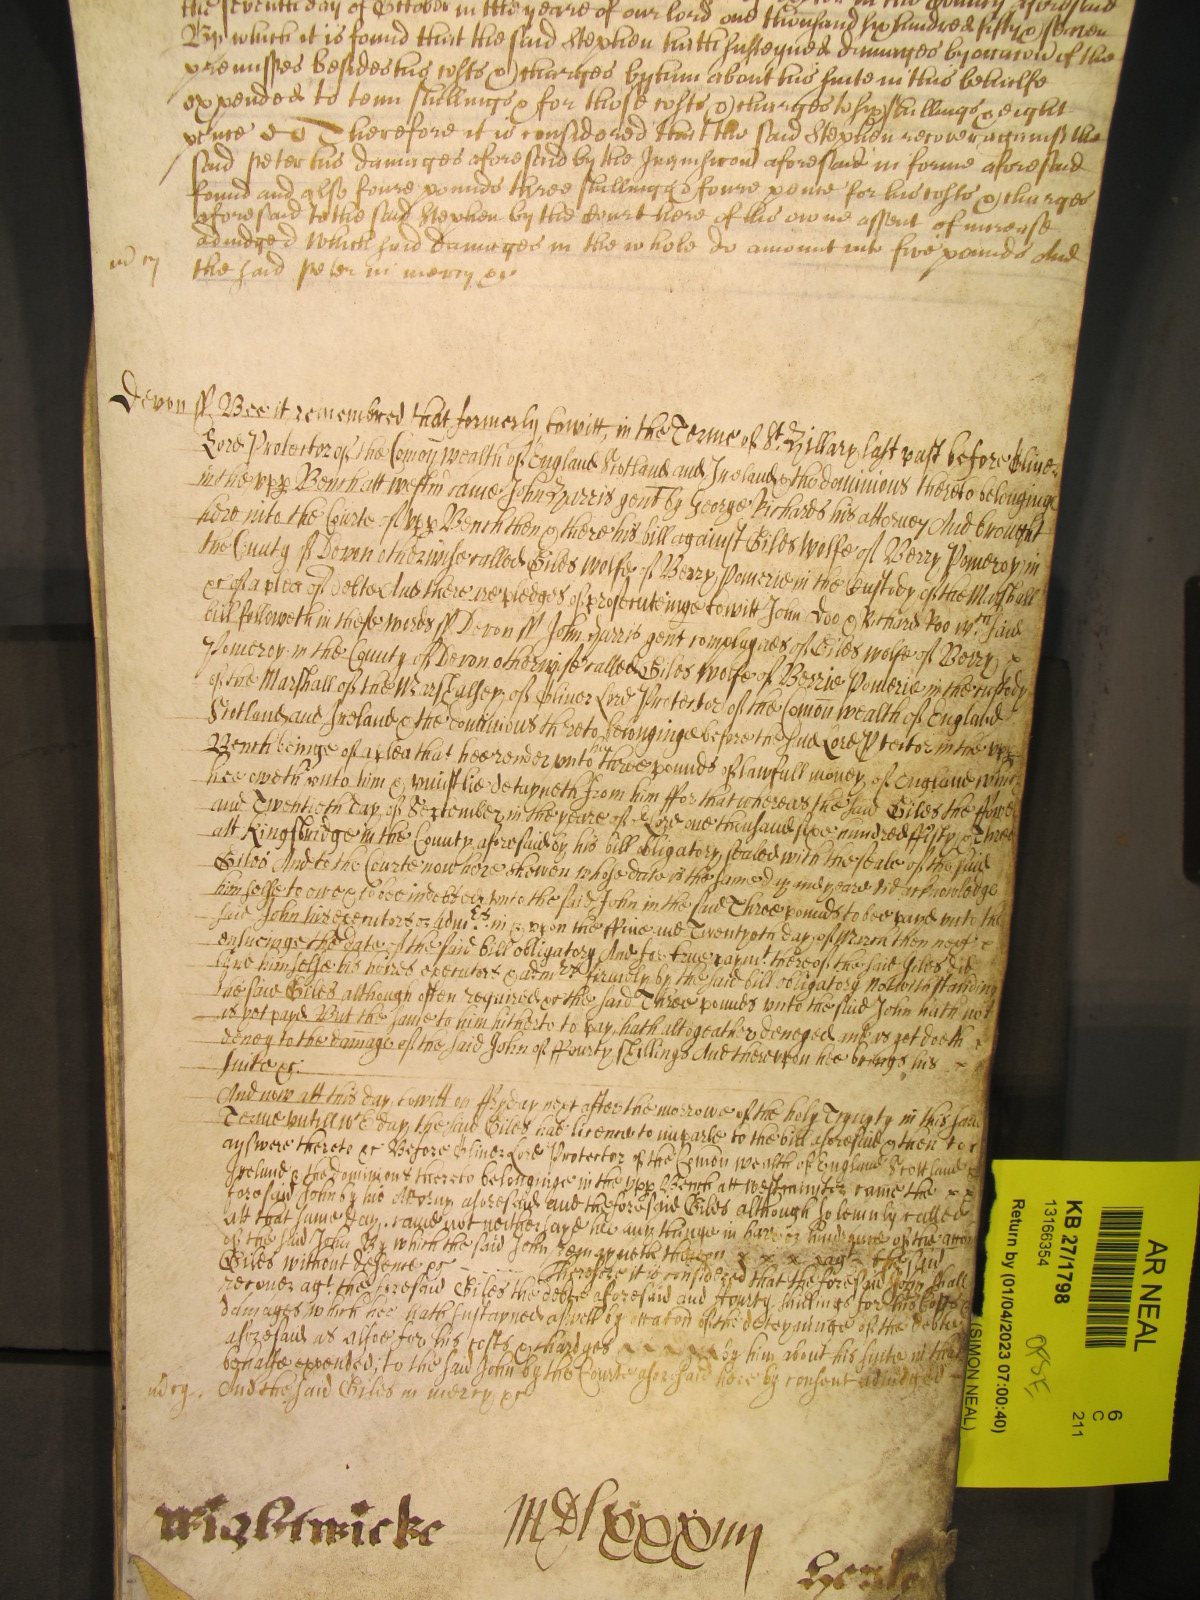 the seventh day of October in the yeare of our lord one thousand six hundred fifty & seaven
By which it is found that the said Stephen hath susteyned damages by occacon of the
premisses besides his costs & charges by him about his suite in this behalfe
expended to tenn shillings & for those costs & charges to six shillings & eight
pence Therefore it is considered that the said Stephen recover against the
said Peter his damages aforesaid by the Inquisicon aforesaid in forme aforesaid
found and also foure pounds three shillings & foure pence for his costs & charges
aforesaid to the said Stephen by the Court here of his owne assent of increase
adiudged Which said damages in the whole do amount unto five pounds And
the said Peter in mercy &c
Devon ss Bee it remembred that formerly towitt, in the Terme of St. Hillary last past before Oliver
Lord Protector of the Comonwealth of England Scotland and Ireland & the dominions thereto belonginge
in the upp Bench att westm came John Harris gent by George Richards his attorney And brought
here into the Courte of upp Bench then & there his bill against Giles Wolfe of Berry Pomeroy in
the County of Devon otherwise called Giles Wolfe of Berry Pomerie in the Custody of the Marshall
&c of a plea of debte And there are pledges of prosecuteinge towitt John Doo & Richard Roo wch said
bill followeth in these words ss Devon ss John Harris gent complaynes of Giles Wolfe of Berry
Pomeroy in the County of Devon otherwise called Giles Wolfe of Berrie Pomerie in the custody
of the Marshall of the Marshalsey of Oliver Lord Protector of the Comonwealth of England
Scotland and Ireland & the dominions thereto belonginge before the said Lord Protector in the upp
Bench beinge of a plea that hee render unto him three pounds of lawfull money of England which
hee oweth unto him & uniustlie detayneth from him ffor that whereas the said Giles the ffower
and Twentieth day of September in the yeare of or Lord one thousand sixe hundred ffifty & three
att Kingsbridge in the County aforesaid by his bill obligatory sealed with the seale of the said
Giles And to the Courte now here shewen whose date is the same day and yeare did acknowledge
himselfe to owe & to bee indebted unto the said John in the said Three pounds to bee payd unto the
said John his executors or admrs in & upon the ffive and Twentyeth day of March then next
ensueinge the date of the said bill obligatory And for true paymt. thereof the said Giles did
bind himselfe his heires executors & admrs firmely by the said bill obligatory Notwithstanding
the said Giles although often required &c the said Three pounds unto the said John hath not
as yet payd But the same to him hitherto to pay hath altogeather denyed and as yet doeth
deney to the damage of the said John of ffourty shillings And thereupon hee brings his
suite &c
And now att this day, towitt on ffryday next after the morrowe of the holy Trynyty in this same
Terme untill wch day the said Giles had licence to imparle to the bill aforesaid & then to
answere thereto &c Before Oliver Lord Protector of the Comonwealth of England Scottland
Ireland & the dominions thereto belonginge in the upp Bench att Westminster came the
foresaid John by his Attorny aforesaid and the foresaid Giles although solemnly called
att that same day came not neither sayd hee any thinge in barr or hindrance of the accon
of the said John By which the said John remayneth thereon agt the said
Giles without defence &c Therefore it is considered that the foresaid John shall
recover agt. the foresaid Giles the debte aforesaid and ffourty shillings for his costs
damages which hee hath sustayned aswell by occacon of the deteyninge of the debte
aforesaid as alsoe for his costs & chardges by him about his suite in that
behalfe expended, to the said John by the Courte aforesaid here by consent adiudged
And the said Giles in mercy &c
Wightwicke MDlxxxiiij
AR NEAL
KB 27/1798
13166354
Return by (01/04/2023 07:00:40)
(SIMON NEAL)
6
C
211